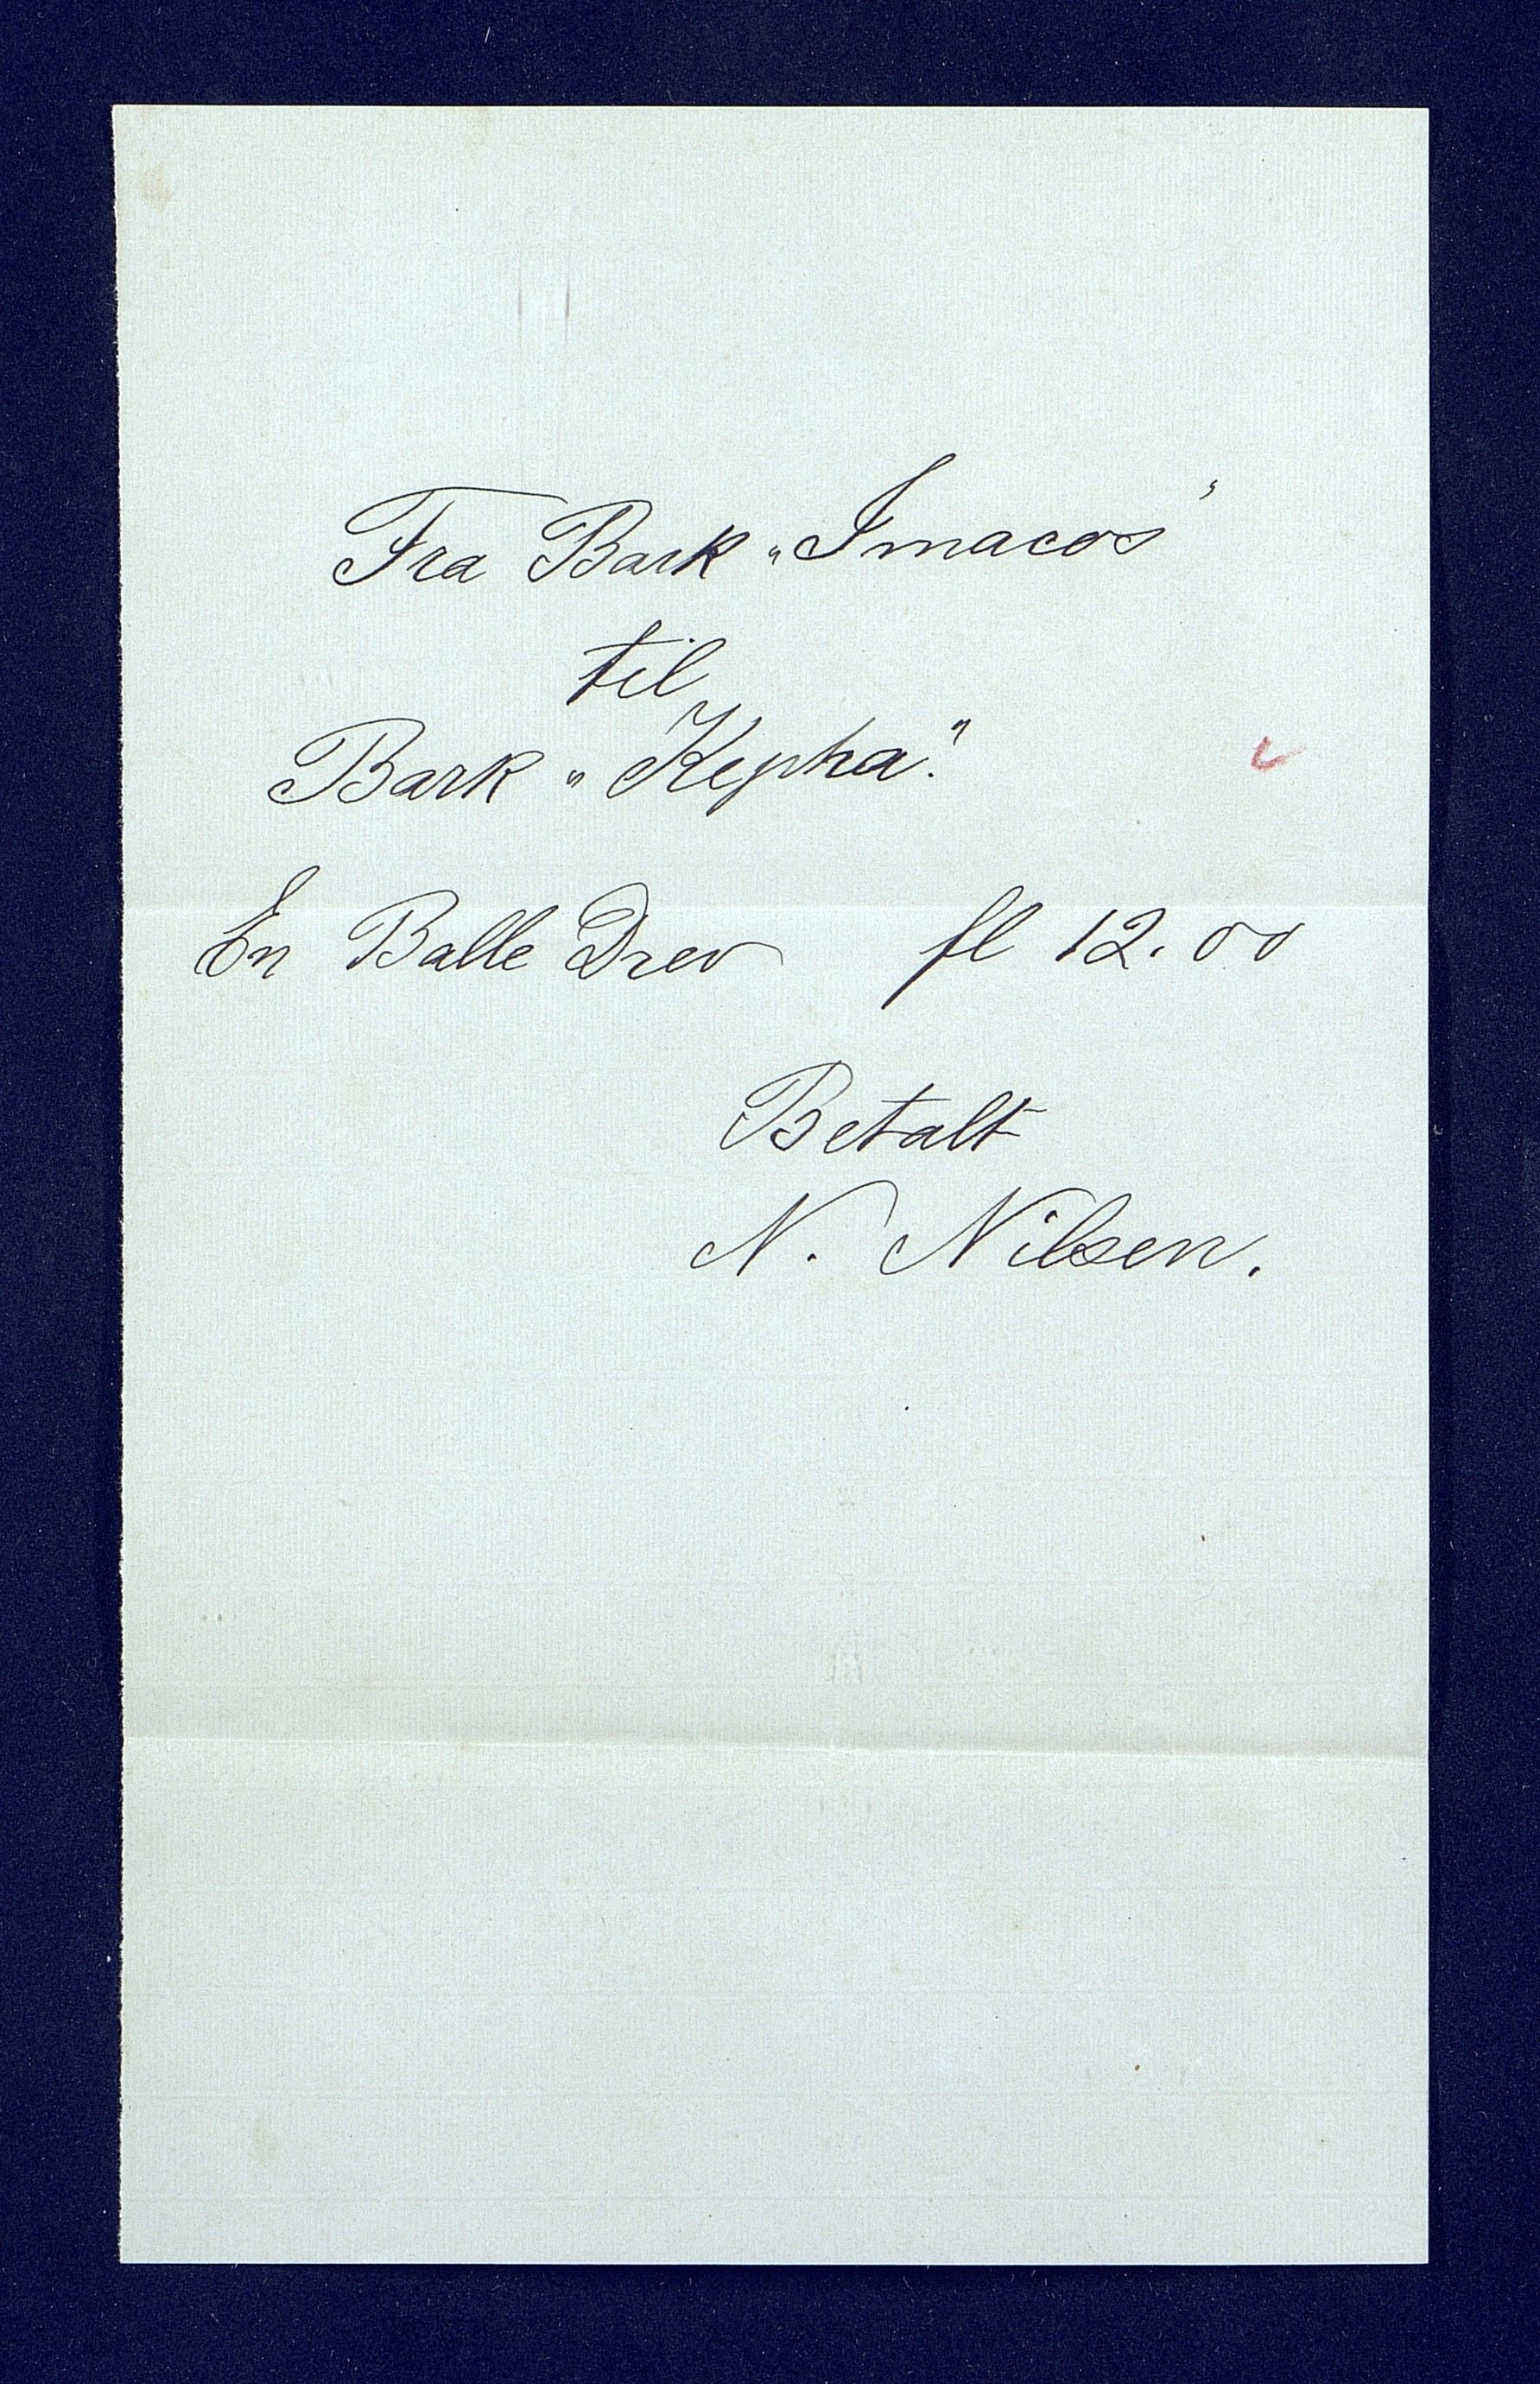 Fra Bark „Imacos"
til
Bark „Kepha".
En Balle Drev fl 12.00
Betalt
N. Nilsen.